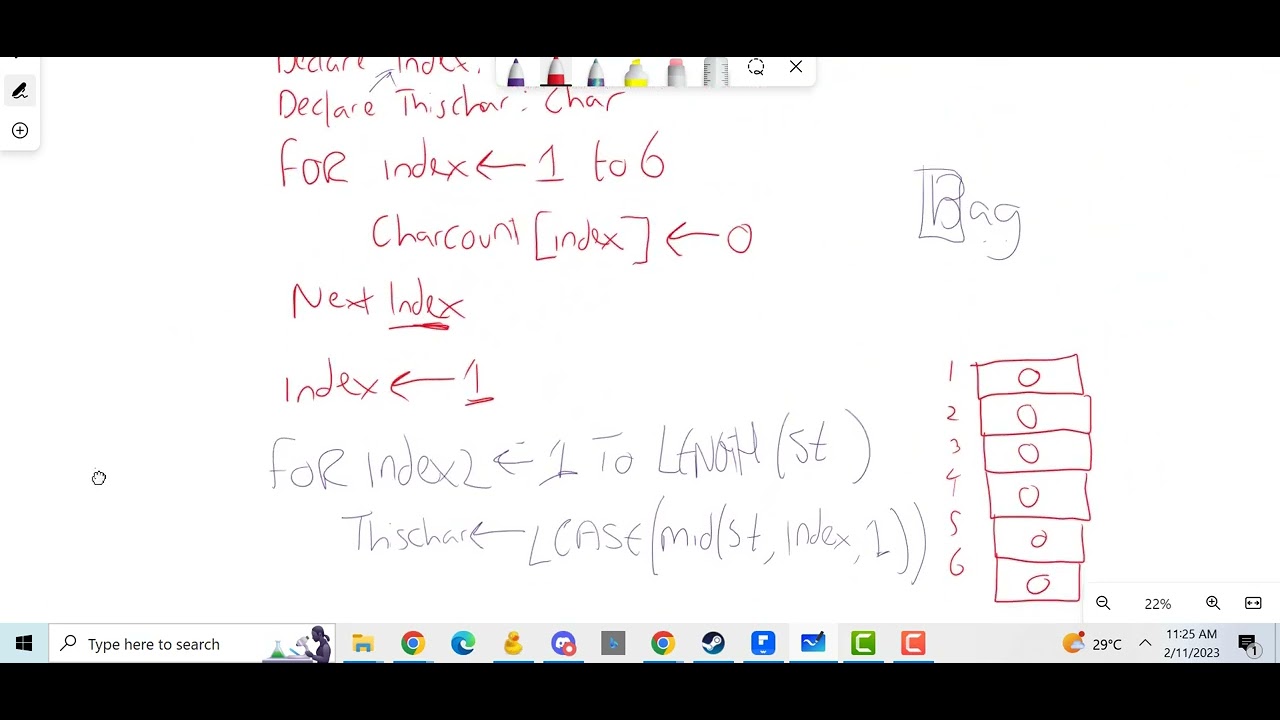 Declare Index:
Declare Thischar: Char
FOR index ← 1 to 6
Charcount [index] ← 0
Next Index
Index ← 1
FOR Index2 ← 1 TO LENGTH (St)
Thischar ← LCASE(mid(St, Index, 1))
Bag
1 0
2 0
3 0
4 0
5 0
6 0
22%
Type here to search
29°C
11:25 AM
2/11/2023
1